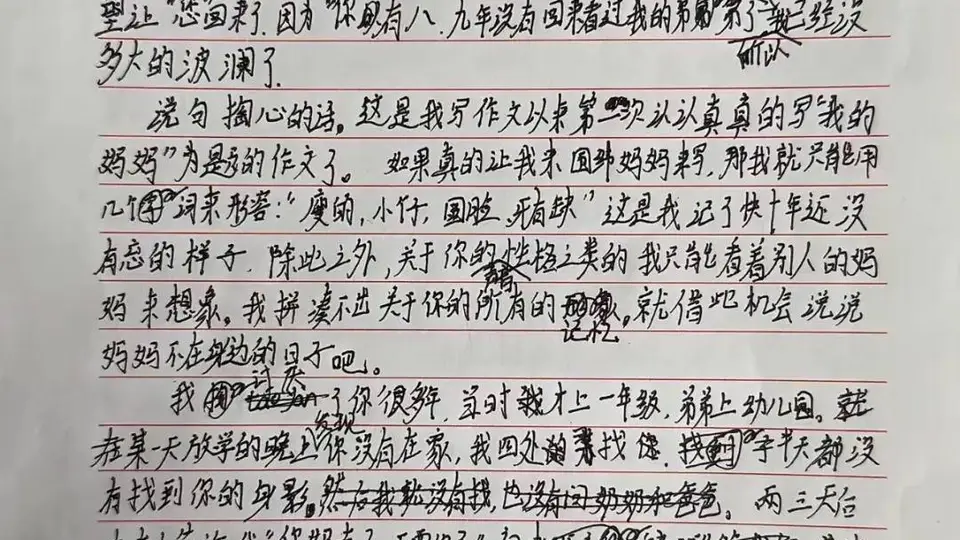 让"您"回来了,因为"你"已有八、九年没有回来看过我的弟弟 了,我已经没
所以
多大的波澜了.
说句掏心的话,这是我写作文以来第一次认认真真的写"我的
妈妈"为题的作文了。如果真的让我来围绕妈妈来写,那我就只能用
几个 词来形容:"瘦的,小 ,圆脸, 有缺"这是我记了快十年还没
有忘的样子.除此之外,关于你的性格之类的我只能看着别人的妈
妈来想象。我拼凑不出关于你的所有的 ,就借此机会说说
记忆
妈妈不在身边的日子吧。
我 了你很多年,当时我才上一年级,弟弟上幼儿园。就
发现
在某一天放学的晚上你没有在家,我四处的寻找 , 半天都没
有找到你的身影,然后我就没有找,也没有问奶奶和爸爸。两三天后